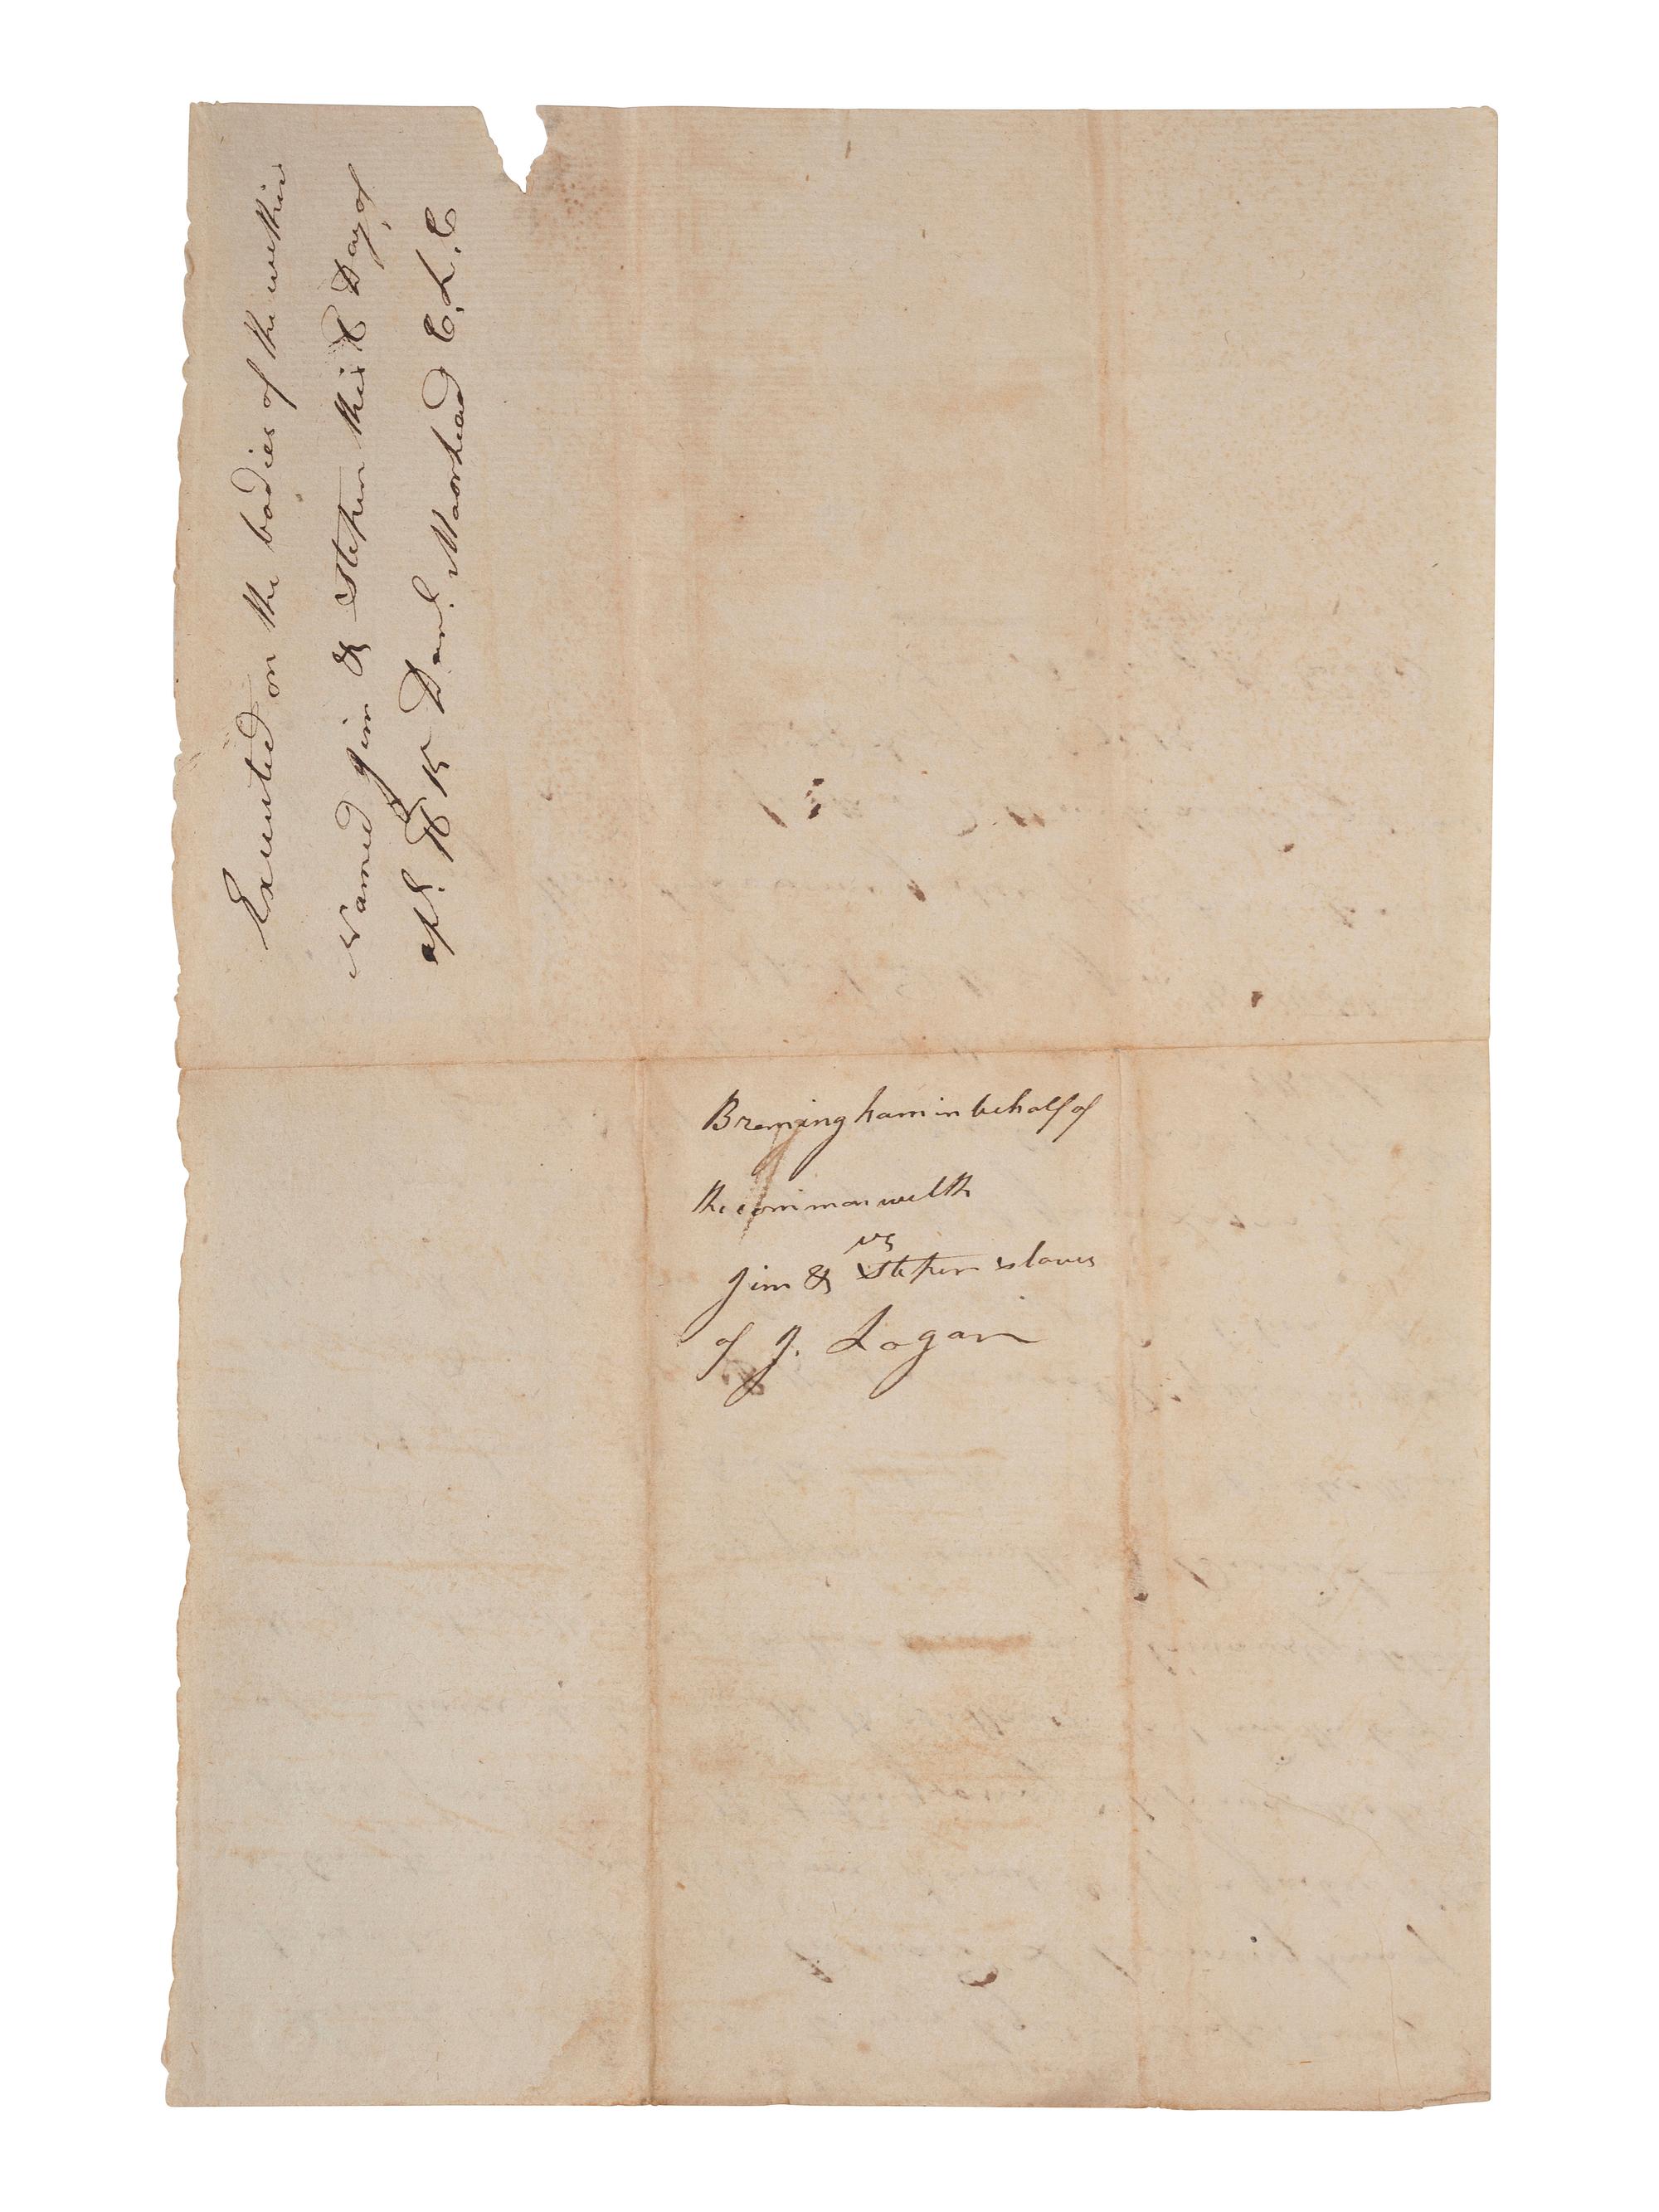 Executed on the bodies of the within
Named Jim & Stephen this Day of
apl. Danl. Moorhead C. L. C
Bremingham in behalf of
the common wealth
vs
Jim & Stephen slaves
of J. Logan